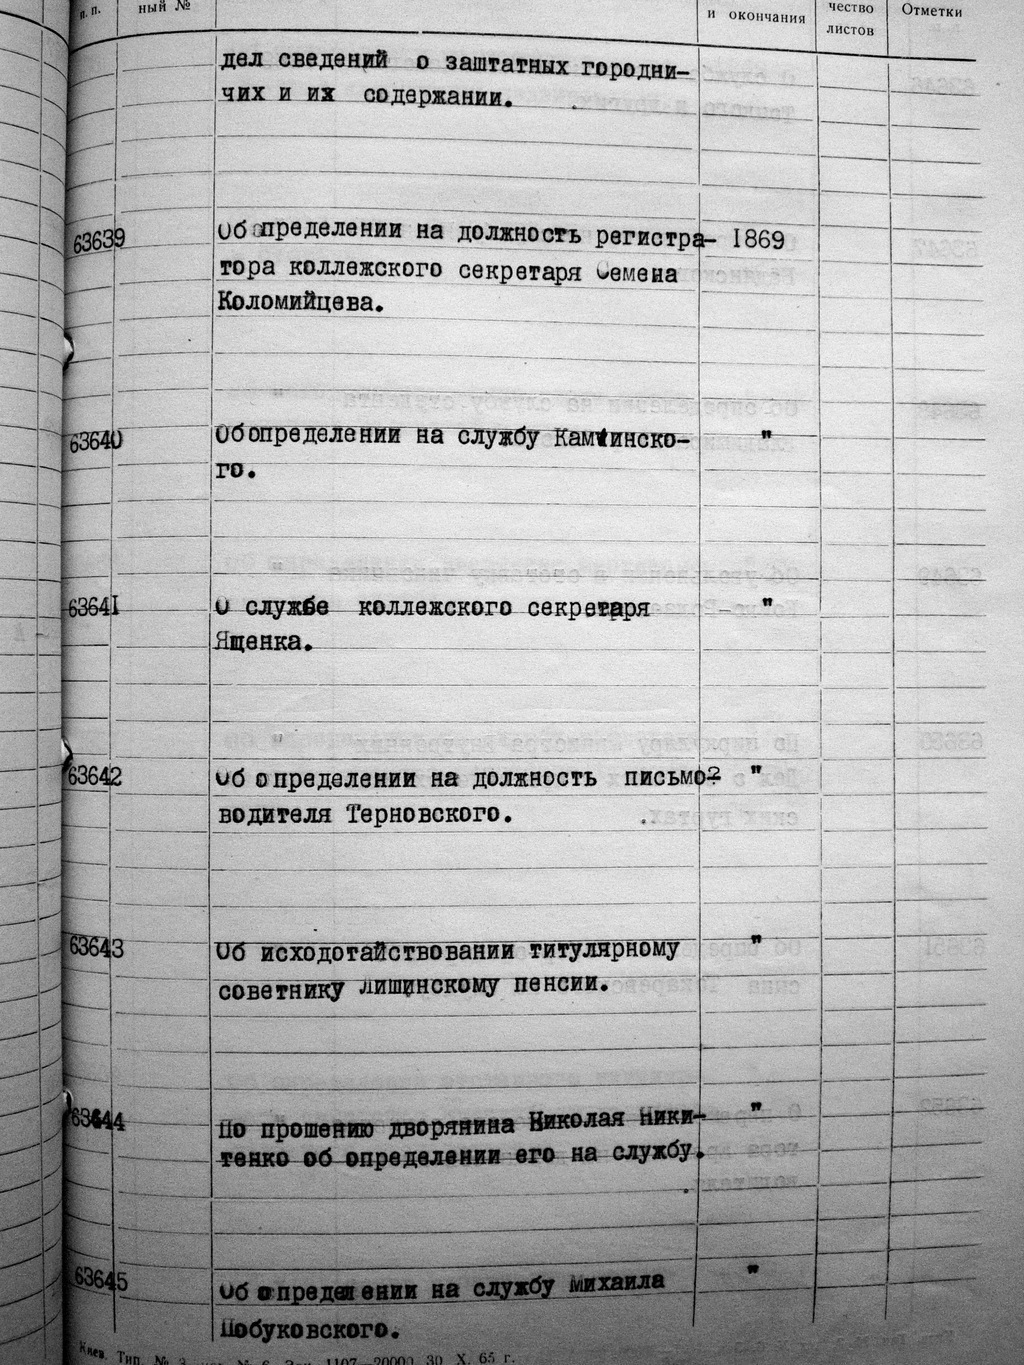 п. п. ный № и окончания чество листов Отметки
дел сведений о заштатных городни-
чих и их содержании.
63639 Об определении на должность регистра- 1869
тора коллежского секретаря Семена
Коломийцева.
63640 Об определении на службу Камтинско- "
го.
63641 О службе коллежского секретаря "
Ященка.
63642 Об определении на должность письмо- "
водителя Терновского.
63643 Об исходотайствовании титулярному "
советнику Лищинскому пенсии.
63644 По прошению дворянина Николая Ники- "
тенко об определении его на службу.
63645 Об определении на службу Михаила "
Побуковского.
Киев. Тип. № 3, зак. № 6. Зак. 1107—20000. 30. X. 65 г.